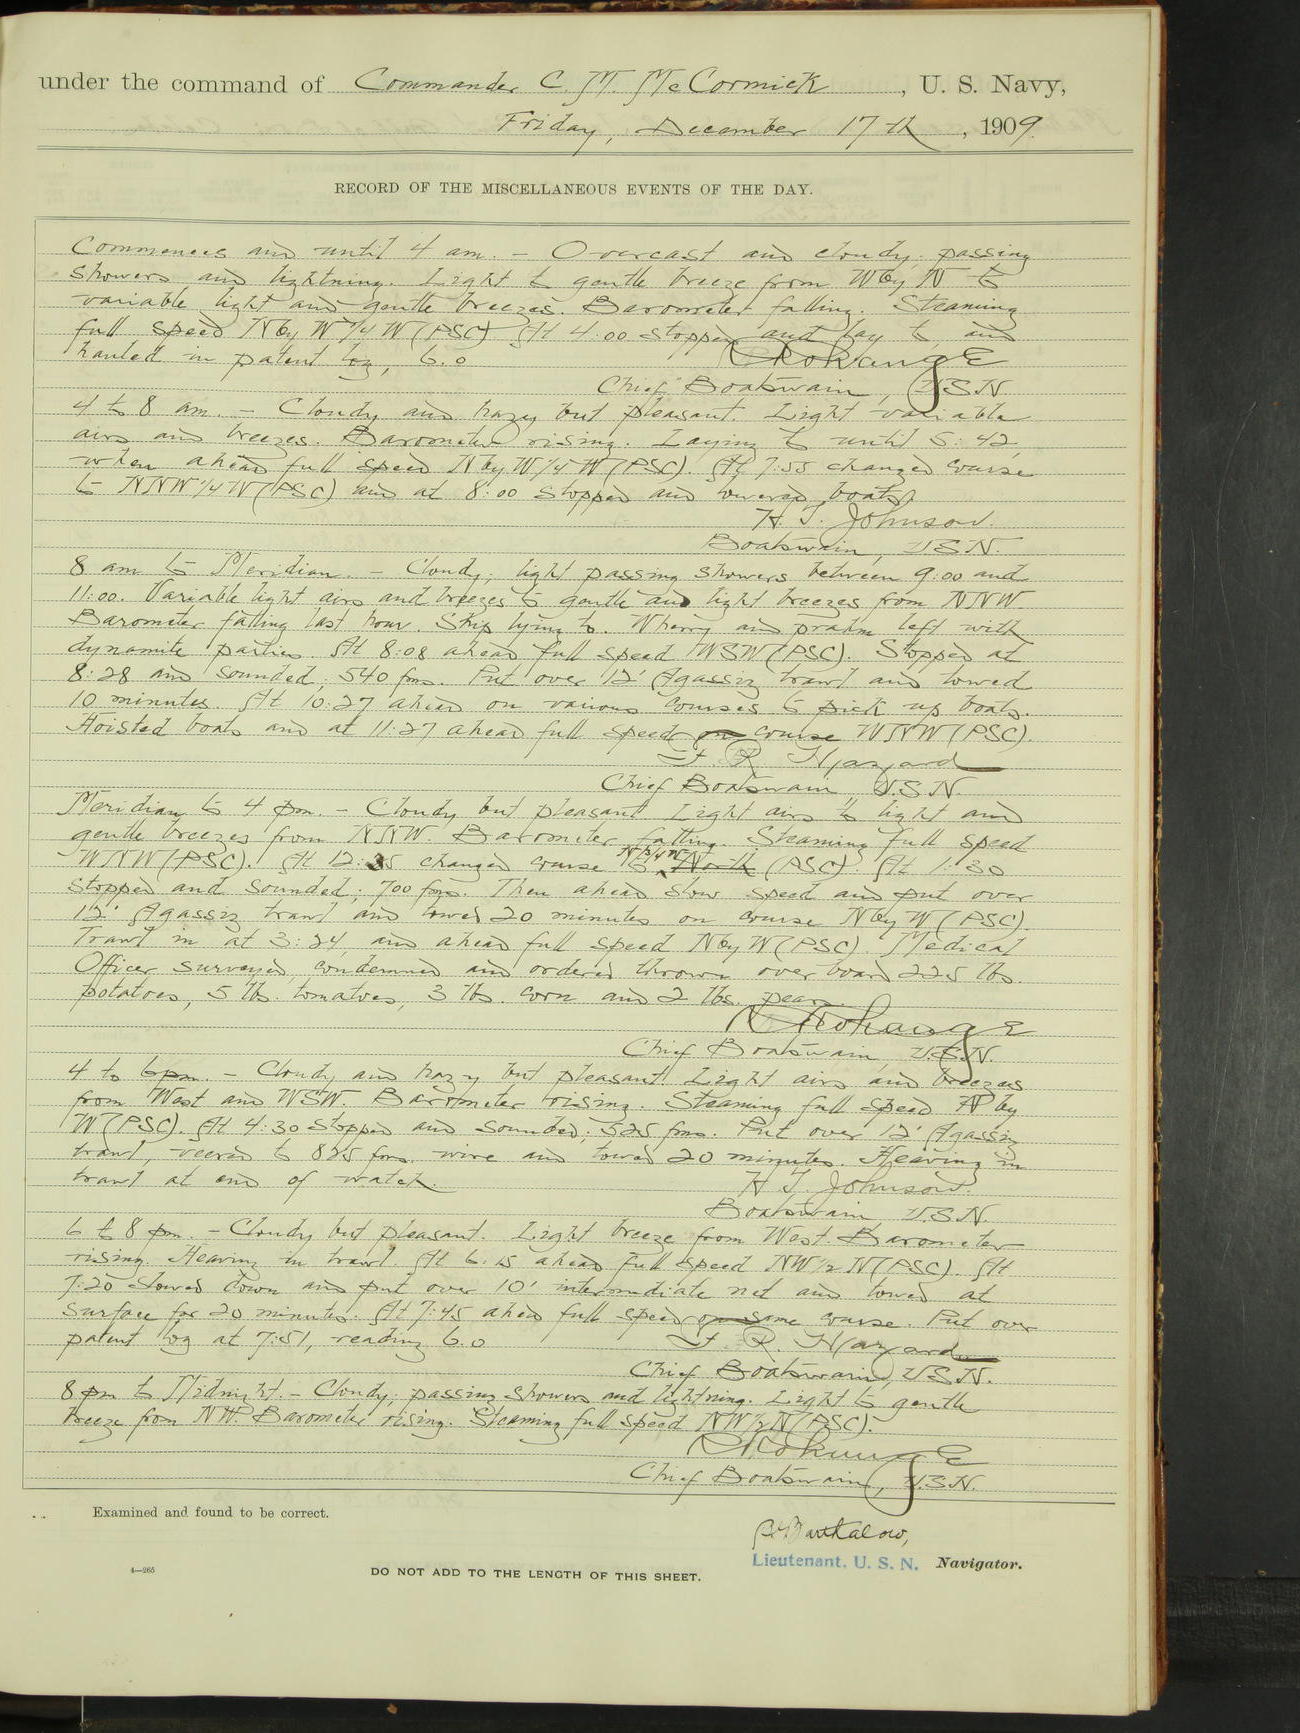 under the command of Commander C. M. McCormick, U. S. Navy,
Friday, December 17th, 1909.
RECORD OF THE MISCELLANEOUS EVENTS OF THE DAY.
Commences and until 4 am. - Overcast and cloudy, passing
showers and lightning. Light to gentle breeze from W by N to
variable light and gentle breezes. Barometer falling. Steaming
full speed N by W 1/4 W (PSC). At 4:00 stopped and lay to, and
hauled in patent log, 6.0
Chief Boatswain, USN.
4 to 8 am. - Cloudy and hazy but pleasant. Light variable
airs and breezes. Barometer rising. Laying to until 5:42,
when ahead full speed N by W 1/4 W (PSC). At 7:55 changed course
to NNW 1/4 W (PSC) and at 8:00 stopped and lowered boats.
H. T. Johnson.
Boatswain, USN.
8 am to Meridian. - Cloudy; light passing showers between 9:00 and
11:00. Variable light airs and breezes to gentle and light breezes from NNW.
Barometer falling last hour. Ship lying to. Wherry and praam left with
dynamite parties. At 8:08 ahead full speed WSW (PSC). Stopped at
8:28 and sounded; 540 fms. Put over 12' Agassiz trawl and towed
10 minutes. At 10:27 ahead on various courses to pick up boats.
Hoisted boats and at 11:27 ahead full speed on course WNW (PSC).
F R Hazard
Chief Boatswain U.S.N.
Meridian to 4 pm. - Cloudy but pleasant. Light airs to light and
gentle breezes from NNW. Barometer falling. Steaming full speed
WNW (PSC). At 12:35 changed course to North (PSC). At 1:30
stopped and sounded; 700 fms. Then ahead slow speed and put over
12' Agassiz trawl and towed 20 minutes on course N by W (PSC).
Trawl in at 3:24, and ahead full speed N by W (PSC). Medical
Officer surveyed condemned and ordered thrown over board 225 lbs.
potatoes, 5 lbs. tomatoes, 3 lbs. corn and 2 lbs. pears.
Chief Boatswain U.S.N.
4 to 6 pm. - Cloudy and hazy but pleasant. Light airs and breezes
from West and WSW. Barometer rising. Steaming full speed N by
W (PSC). At 4:30 stopped and sounded; 525 fms. Put over 12' Agassiz
trawl, veered to 825 fms. wire and towed 20 minutes. Heaving in
trawl at end of watch.
H T. Johnson.
Boatswain, U.S.N.
6 to 8 pm. - Cloudy but pleasant. Light breeze from West. Barometer
rising. Heaving in trawl. At 6.15 ahead full speed NW 1/2 N (PSC). At
7:20 slowed down and put over 10' intermediate net and towed at
surface for 20 minutes. At 7:45 ahead full speed on same course. Put over
patent log at 7:51, reading 6.0
F. R. Hazard
Chief Boatswain, U.S.N.
8 pm to Midnight. - Cloudy; passing showers and lightning. Light to gentle
breeze from NW. Barometer rising. Steaming full speed NW 1/2 N (PSC).
Chief Boatswain, U.S.N.
Examined and found to be correct.
Barthalow,
Lieutenant, U. S. N. Navigator.
4—265
DO NOT ADD TO THE LENGTH OF THIS SHEET.